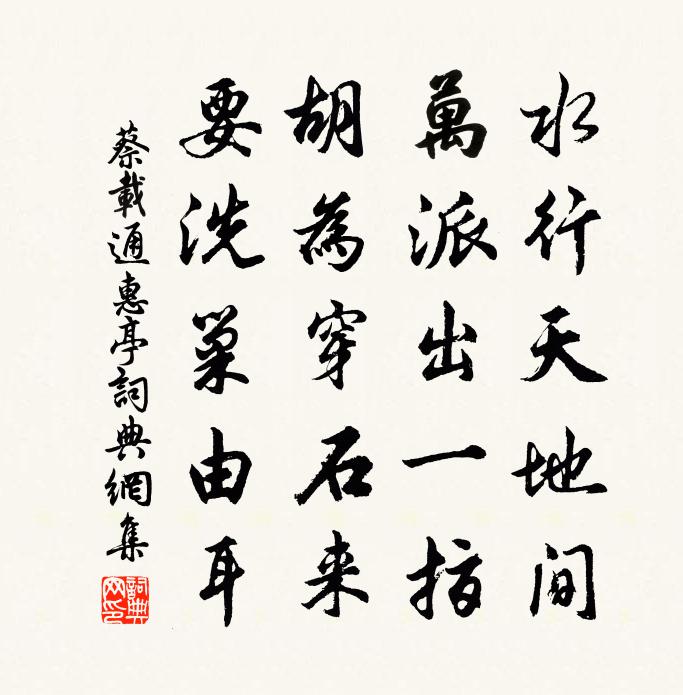 水行天地間
萬派出一指
胡為穿石来
要洗巢由耳
蔡載通惠亭詞典網集
詞典網印